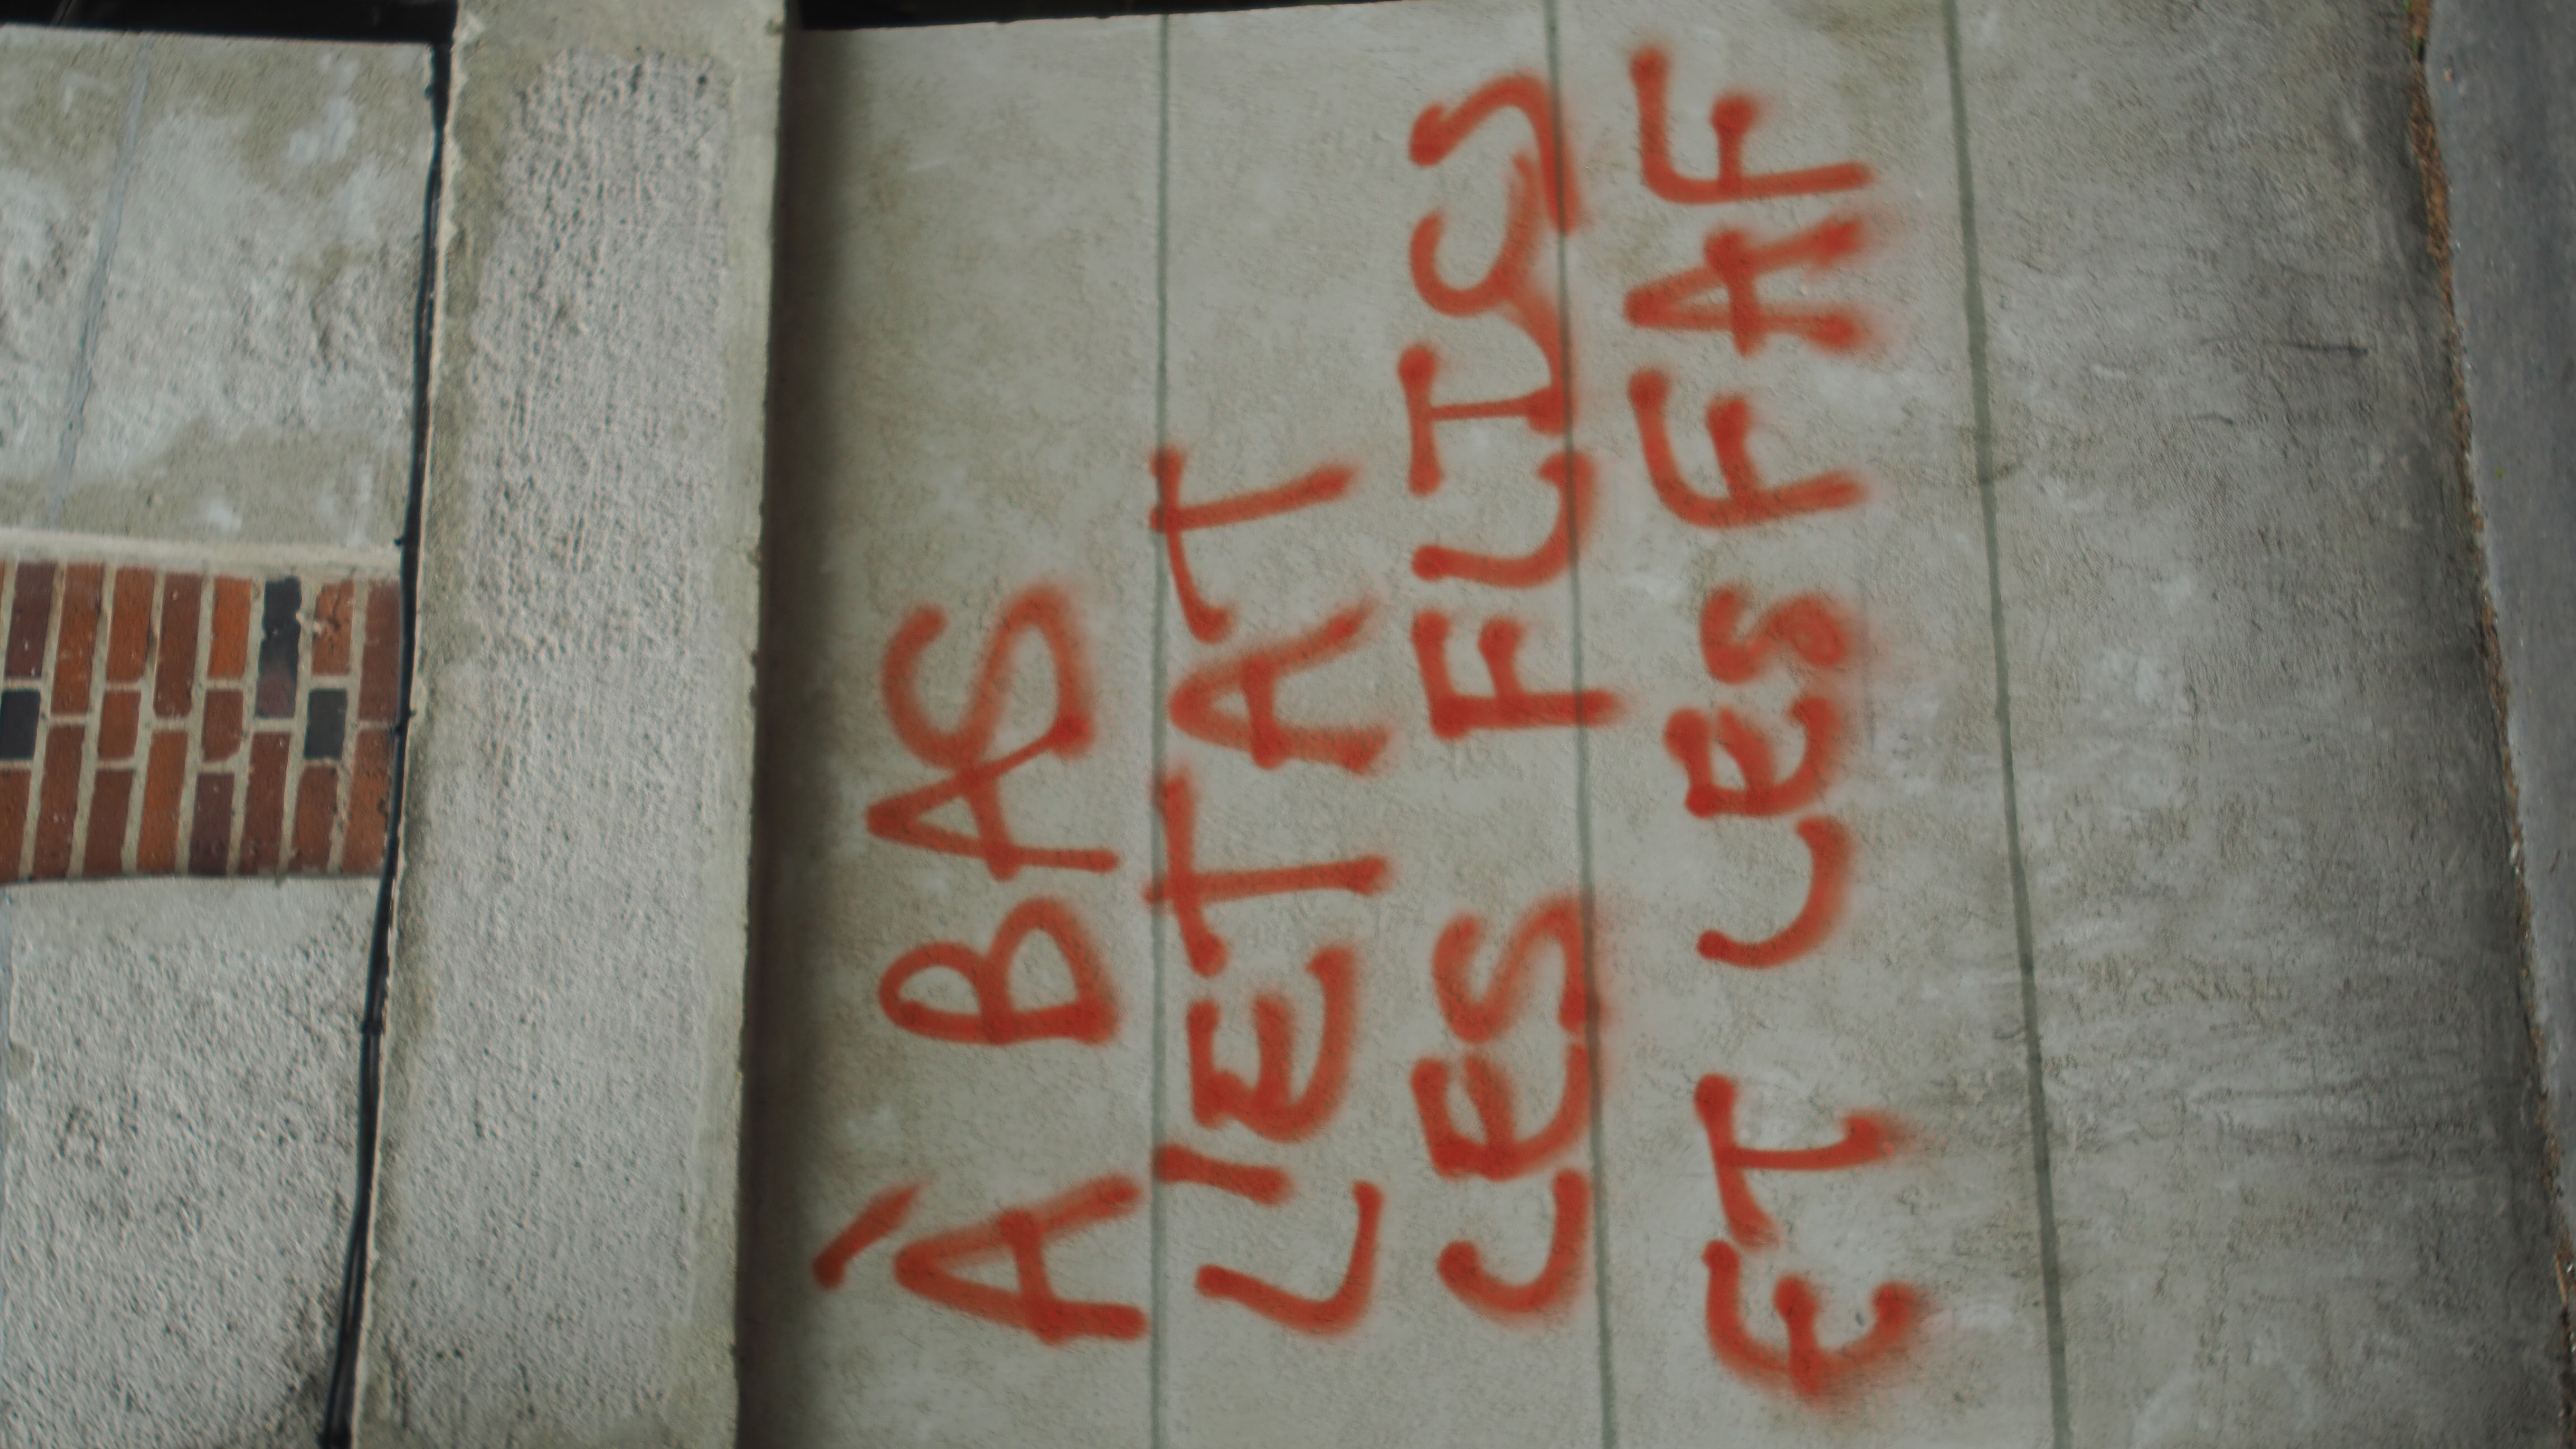 À BAS
L'ETAT
LES FLICS
ET LES FAF